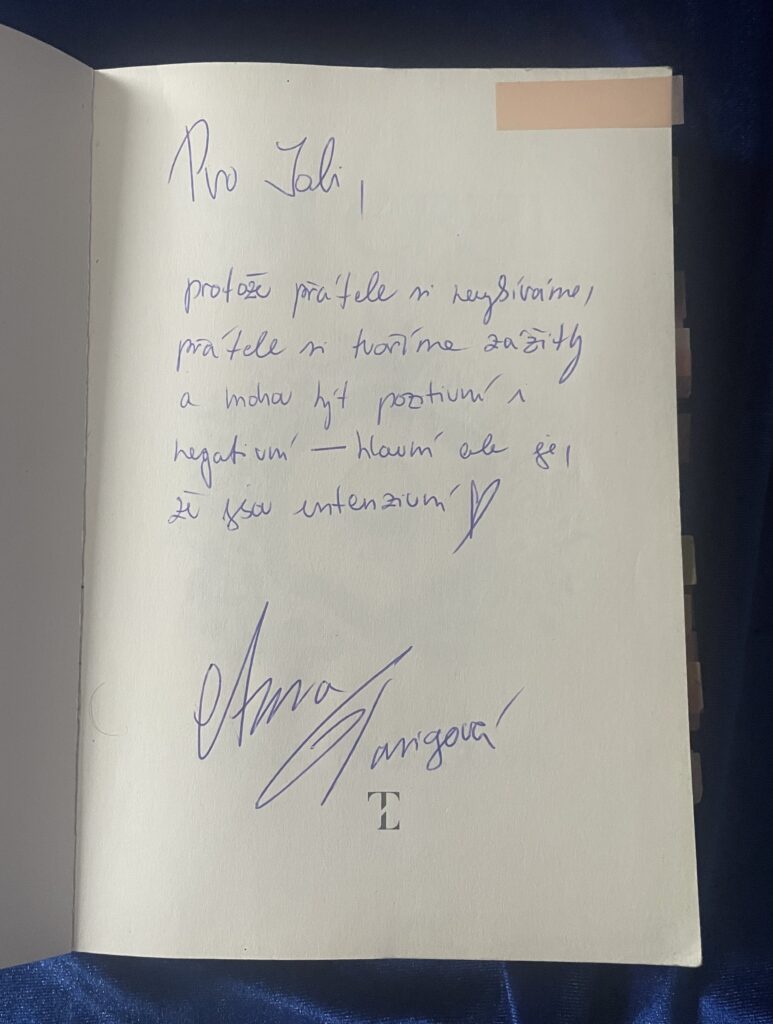 Pro Jali,
protože přátele si nevybíráme,
přátele si tvoříme zážitky
a mohou být pozitivní i
negativní — hlavní ale je,
že jsou intenzivní
Anna
TL